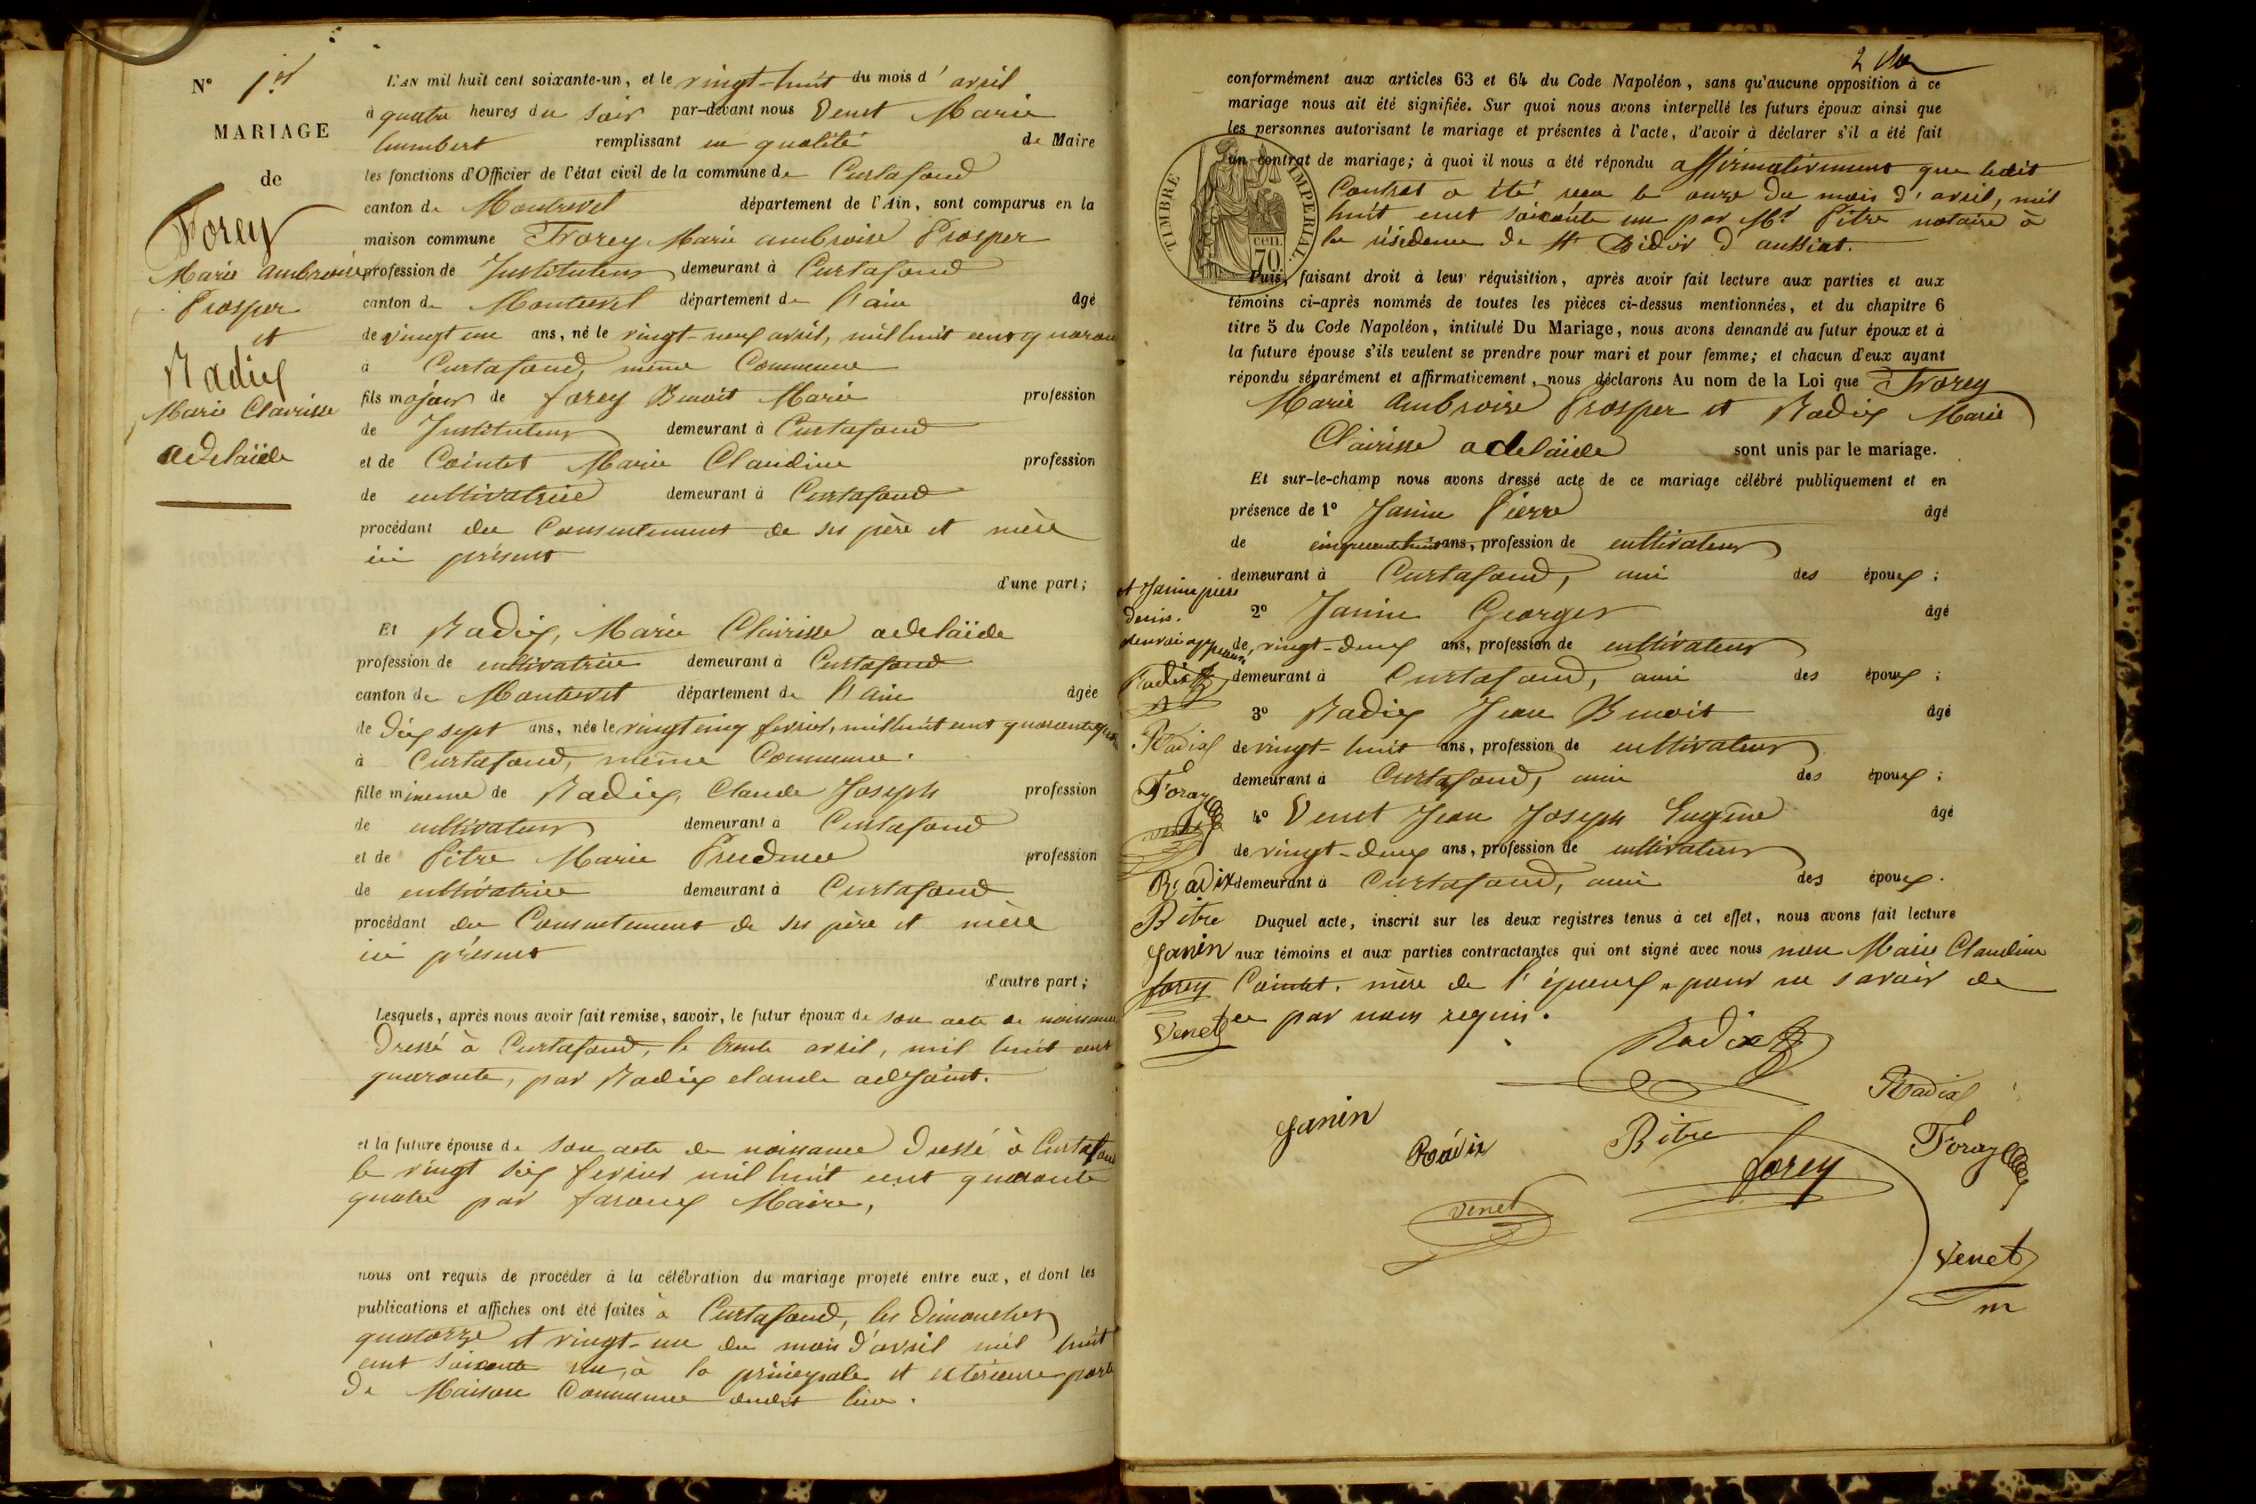 N° 1er
MARIAGE
de
Forey
Marie ambroise
Prosper
et
Radix
Marie Clairisse
adelaïde
L'AN mil huit cent soixante-un, et le vingt-huit du mois d'avril
à quatre heures du soir par-devant nous Venet Marie
humbert remplissant en qualité de Maire
les fonctions d'Officier de l'état civil de la commune de Curtafond
canton de Montrevel département de l'Ain, sont comparus en la
maison commune Forey Marie ambroise Prosper
profession de Instituteur demeurant à Curtafond
canton de Montrevel département de l'ain âgé
de vingt un ans, né le vingt-neuf avril, mil huit cent quaran
à Curtafond, même Commune
fils majeur de forey Benoit Marie profession
de Instituteur demeurant à Curtafond
et de Cointet Marie Claudine profession
de cultivatrice demeurant à Curtafond
procédant du Consentement de ses père et mère
ici présents
d'une part;
Et Radix, Marie Clairisse adelaïde
profession de cultivatrice demeurant à Curtafond
canton de Montrevel département de l'ain âgée
de dix sept ans, née le vingt cinq fevrier, mil huit cent quarante quatre
à Curtafond, même Commune.
fille mineure de Radix, Claude Joseph profession
de cultivateur demeurant à Curtafond
et de Pitre Marie Prudence profession
de cultivatrice demeurant à Curtafond
procédant du Consentement de ses père et mère
ici présents
d'autre part;
Lesquels, après nous avoir fait remise, savoir, le futur époux de son acte de naissance
dressé à Curtafond, le trente avril, mil huit cent
quarante, par Radix claude adjoint.
et la future épouse de son acte de naissance dressé à Curtafond
le vingt six fevrier mil huit cent quarante
quatre par faroux Maire,
nous ont requis de procéder à la célébration du mariage projeté entre eux, et dont les
publications et affiches ont été faites à Curtafond, les dimanches
quatorze et vingt-un du mois d'avril mil huit
cent soixante un, à la principale et extérieure porte
de Maison Commune dudit lieu.
conformément aux articles 63 et 64 du Code Napoléon, sans qu'aucune opposition à ce
mariage nous ait été signifiée. Sur quoi nous avons interpellé les futurs époux ainsi que
les personnes autorisant le mariage et présentes à l'acte, d'avoir à déclarer s'il a été fait
un contrat de mariage; à quoi il nous a été répondu affirmativement que ledit
Contrat a été reçu le onze du mois d'avril, mil
huit cent soixante un par Me Pitre notaire à
la résidence de St Didier d'aussiat.
TIMBRE IMPERIAL
70 cen
Puis, faisant droit à leur réquisition, après avoir fait lecture aux parties et aux
témoins ci-après nommés de toutes les pièces ci-dessus mentionnées, et du chapitre 6
titre 5 du Code Napoléon, intitulé Du Mariage, nous avons demandé au futur époux et à
la future épouse s'ils veulent se prendre pour mari et pour femme; et chacun d'eux ayant
répondu séparément et affirmativement, nous déclarons Au nom de la Loi que Forey
Marie Ambroise Prosper et Radix Marie
Clairisse adelaïde sont unis par le mariage.
Et sur-le-champ nous avons dressé acte de ce mariage célébré publiquement et en
présence de 1° Janin Pierre âgé
de cinquante huit ans, profession de cultivateur
demeurant à Curtafond, ami des époux;
2° Janin Georges âgé
de vingt-deux ans, profession de cultivateur
demeurant à Curtafond, ami des époux;
3° Radix Jean Benoit âgé
de vingt-huit ans, profession de cultivateur
demeurant à Curtafond, ami des époux;
4° Venet Jean Joseph Eugène âgé
de vingt-deux ans, profession de cultivateur
demeurant à Curtafond, ami des époux.
Duquel acte, inscrit sur les deux registres tenus à cet effet, nous avons fait lecture
aux témoins et aux parties contractantes qui ont signé avec nous non Marie Claudine
Cointet, mère de l'époux, pour ne savoir de
ce par nous requis.
et Janin pierre
Radix
Radix
Foray
Venet
Radix
Pitre
Janin
forey
Venet
Radix
Radix
Janin
Radix
Pitre
forey
Foray
Venet
Venet
m